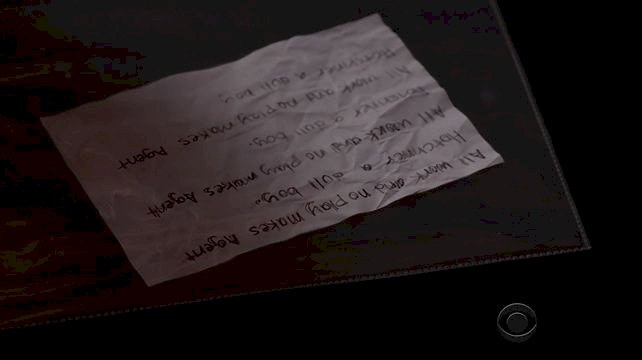 All work and no play makes Agent
Hotchner a dull boy.
All work and no play makes Agent
Hotchner a dull boy.
All work and no play makes Agent
Hotchner a dull boy